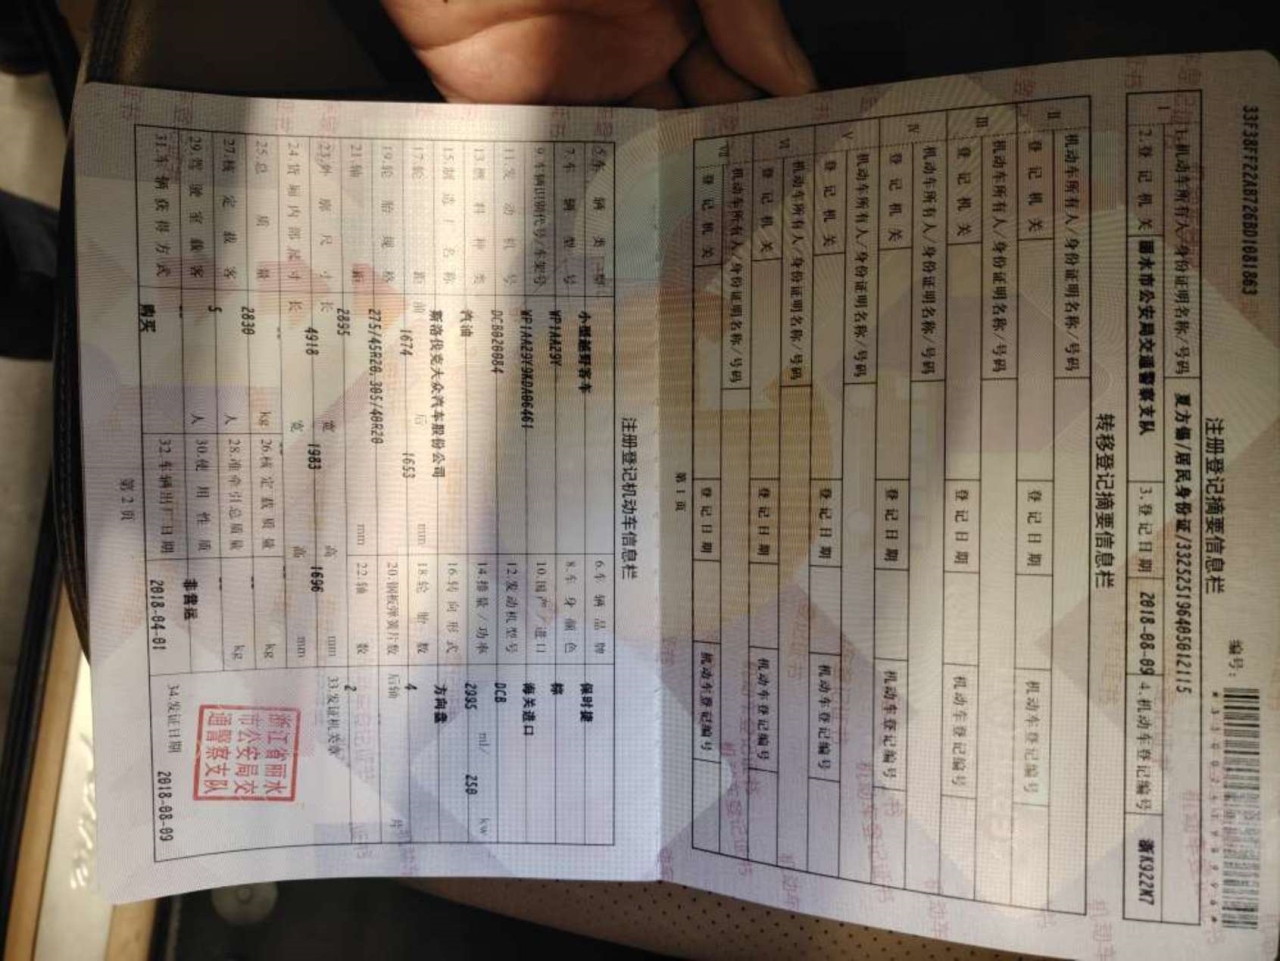 33F38FFZZAB726BD1081863
编号:
注册登记摘要信息栏
I 1.机动车所有人/身份证明名称/号码 夏方儒/居民身份证/332525196405012115
2.登记机关 丽水市公安局交通警察支队 3.登记日期 2018-08-09 4.机动车登记编号 浙K922M7
转移登记摘要信息栏
II 机动车所有人/身份证明名称/号码
登记机关 登记日期 机动车登记编号
III 机动车所有人/身份证明名称/号码
登记机关 登记日期 机动车登记编号
IV 机动车所有人/身份证明名称/号码
登记机关 登记日期 机动车登记编号
V 机动车所有人/身份证明名称/号码
登记机关 登记日期 机动车登记编号
VI 机动车所有人/身份证明名称/号码
登记机关 登记日期 机动车登记编号
VII 机动车所有人/身份证明名称/号码
登记机关 登记日期 机动车登记编号
第1页
注册登记机动车信息栏
5.车辆类型 小型越野客车 6.车辆品牌 保时捷
7.车辆型号 WP1AA29Y 8.车身颜色 棕
9.车辆识别代号/车架号 WP1AA29Y9KDA06461 10.国产/进口 海关进口
11.发动机号 DCB020084 12.发动机型号 DCB
13.燃料种类 汽油 14.排量/功率 2995 ml/ 250 kw
15.制造厂名称 斯洛伐克大众汽车股份公司 16.转向形式 方向盘
17.轮距 前 1674 后 1653 mm 18.轮胎数 4
19.轮胎规格 275/45R20,305/40R20 20.钢板弹簧片数 后轴 片
21.轴距 2895 mm 22.轴数 2
23.外廓尺寸 长 4918 宽 1983 高 1696 mm 33.发证机关章
24.货厢内部尺寸 长 宽 高 mm
25.总质量 2830 kg 26.核定载质量 -- kg
27.核定载客 5 人 28.准牵引总质量 -- kg
29.驾驶室载客 -- 人 30.使用性质 非营运
31.车辆获得方式 购买 32.车辆出厂日期 2018-04-01 34.发证日期 2018-08-09
浙江省丽水
市公安局交
通警察支队
第2页